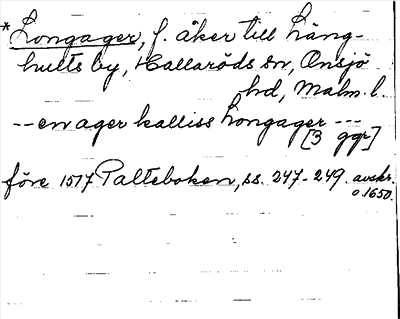 *Longager, f. åker till Läng-
hults by, Hallaröds sn, Onsjö
hd, Malm. l.
-- en ager kalliss Longager ---
[3 ggr]
före 1517 Palteboken, ss. 247-249. avskr.
o 1650.